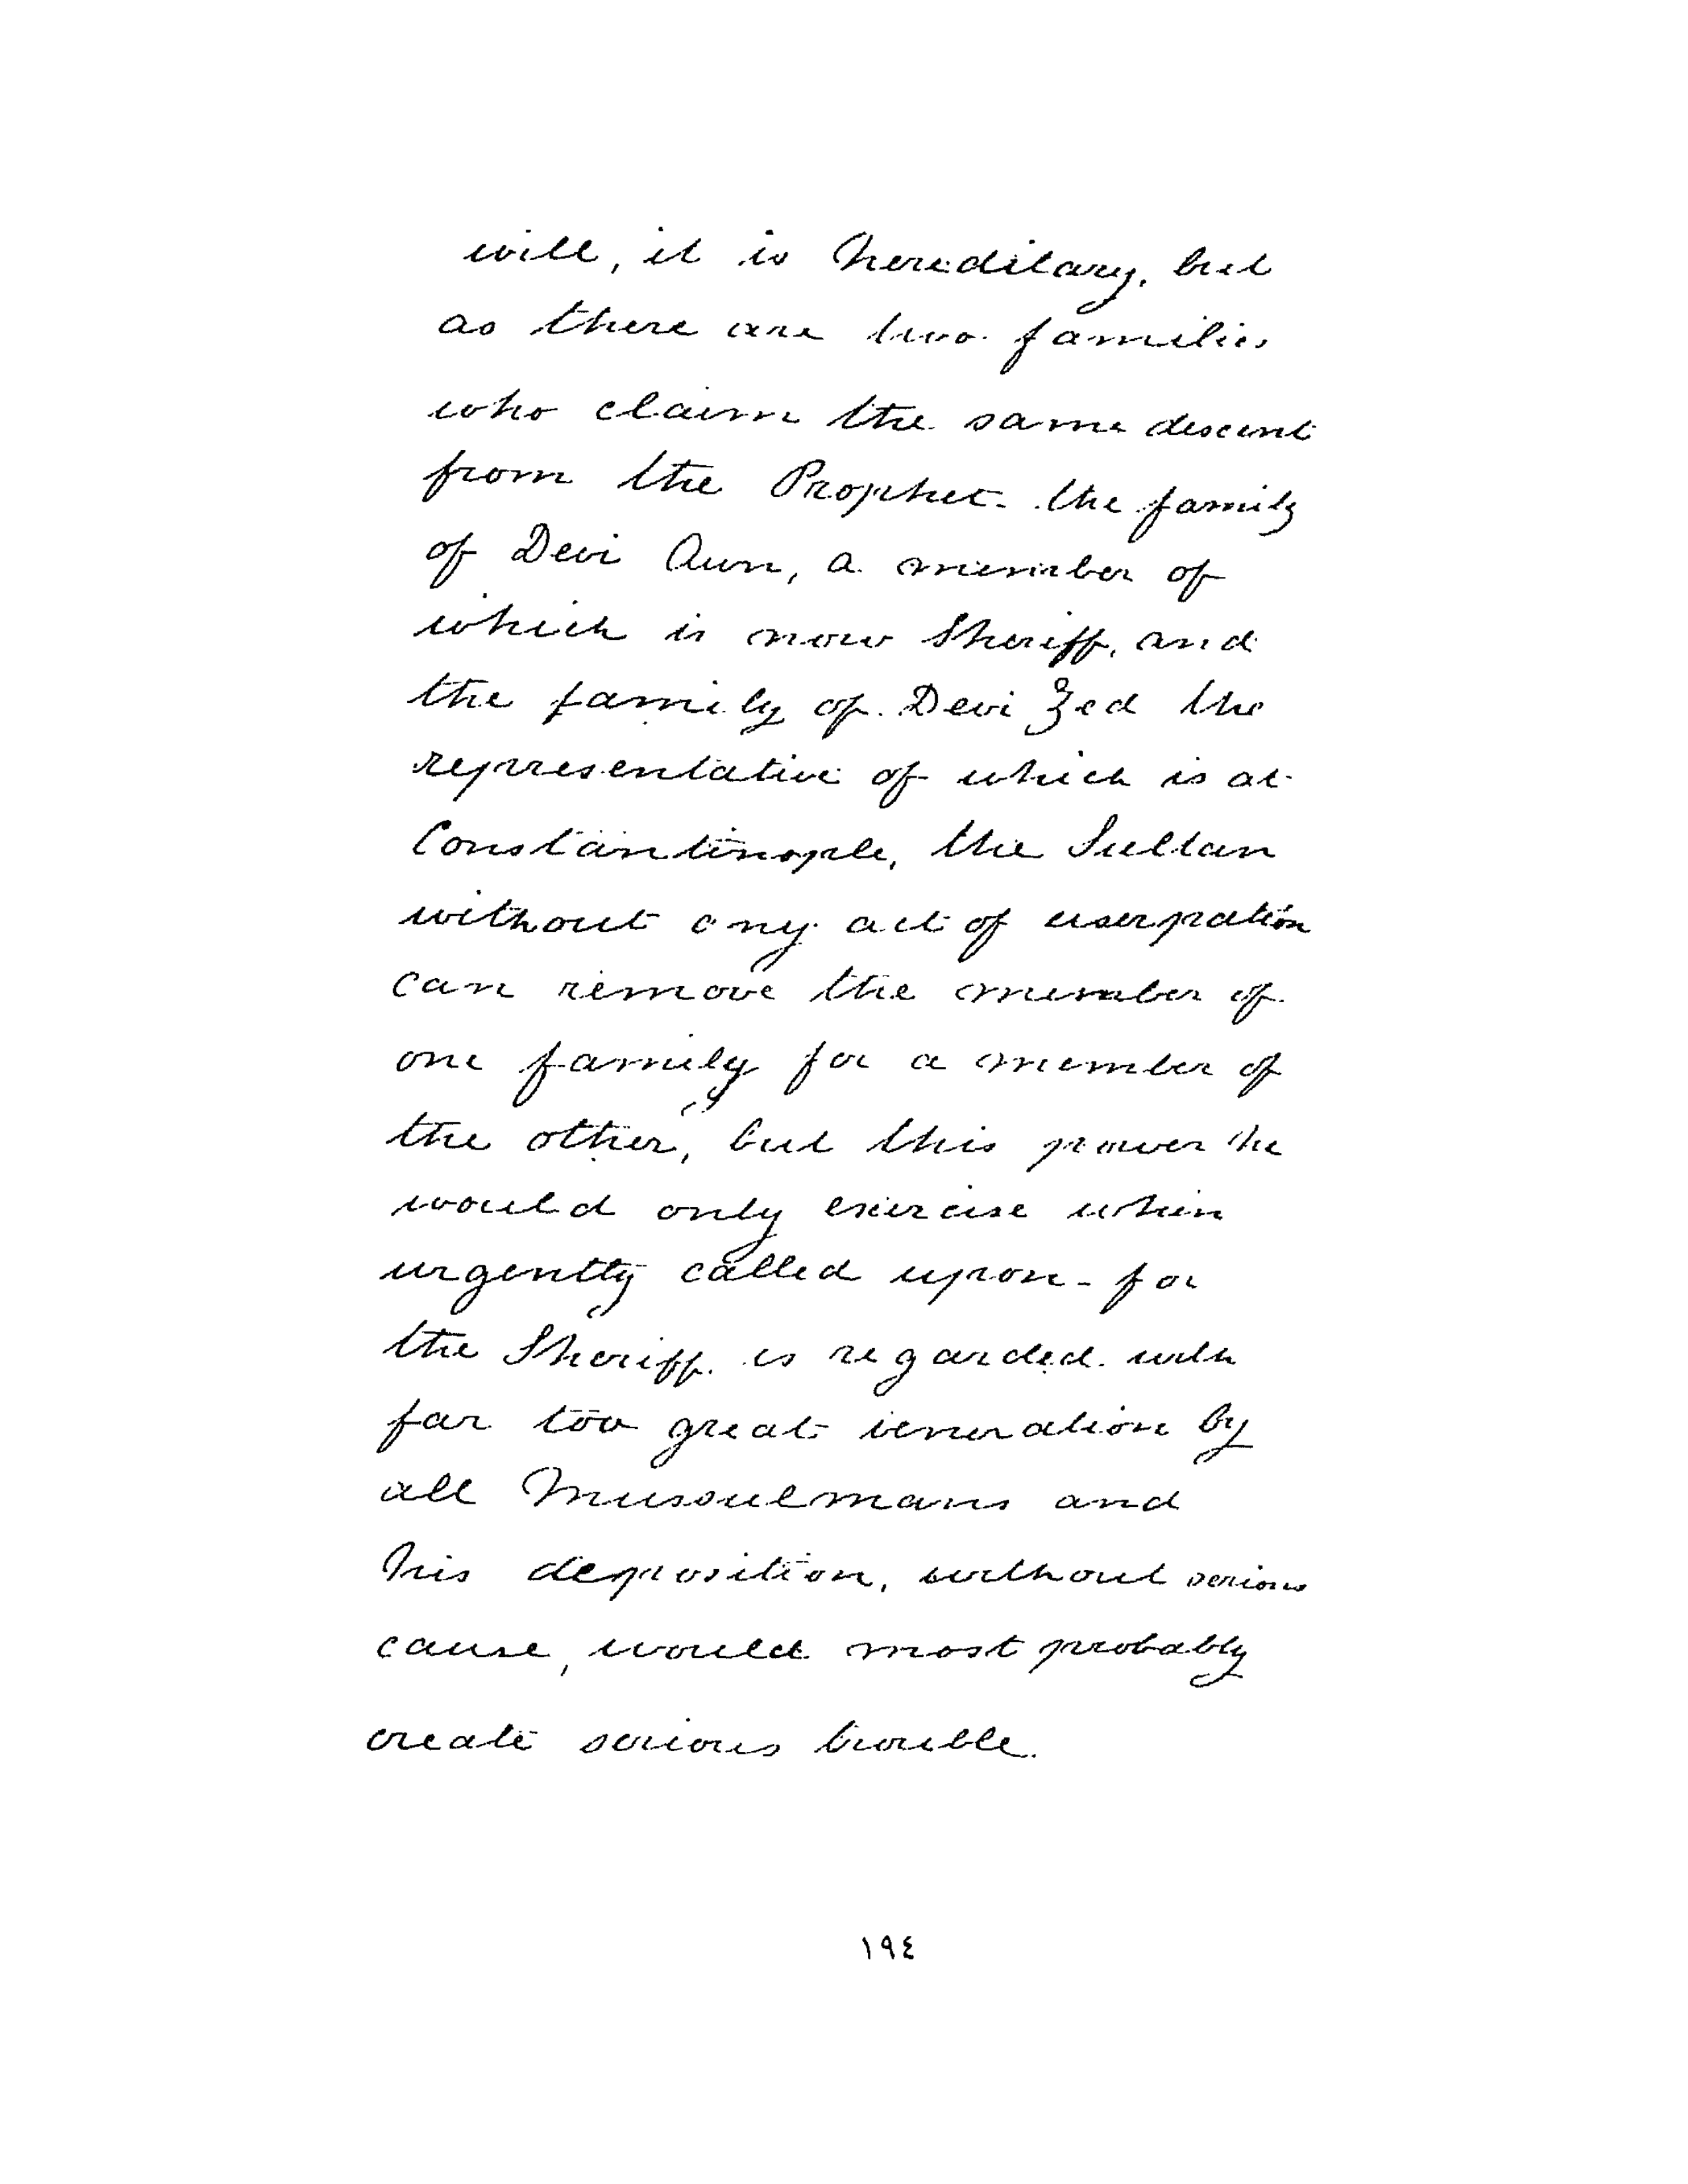 will, it is hereditary, but
as there are two families
who claim the same descent
from the Prophet - the family
of Devi Aun, a member of
which is now Sheriff, and
the family of Devi Zed the
representative of which is at
Constantinople, the Sultan
without any act of userpation
can remove the member of
one family for a member of
the other, but this power he
would only exercise when
urgently called upon - for
the Sheriff is regarded with
far too great veneration by
all Mussoulmans and
his deposition, without serious
cause, would most probably
create serious trouble.
١٩٤